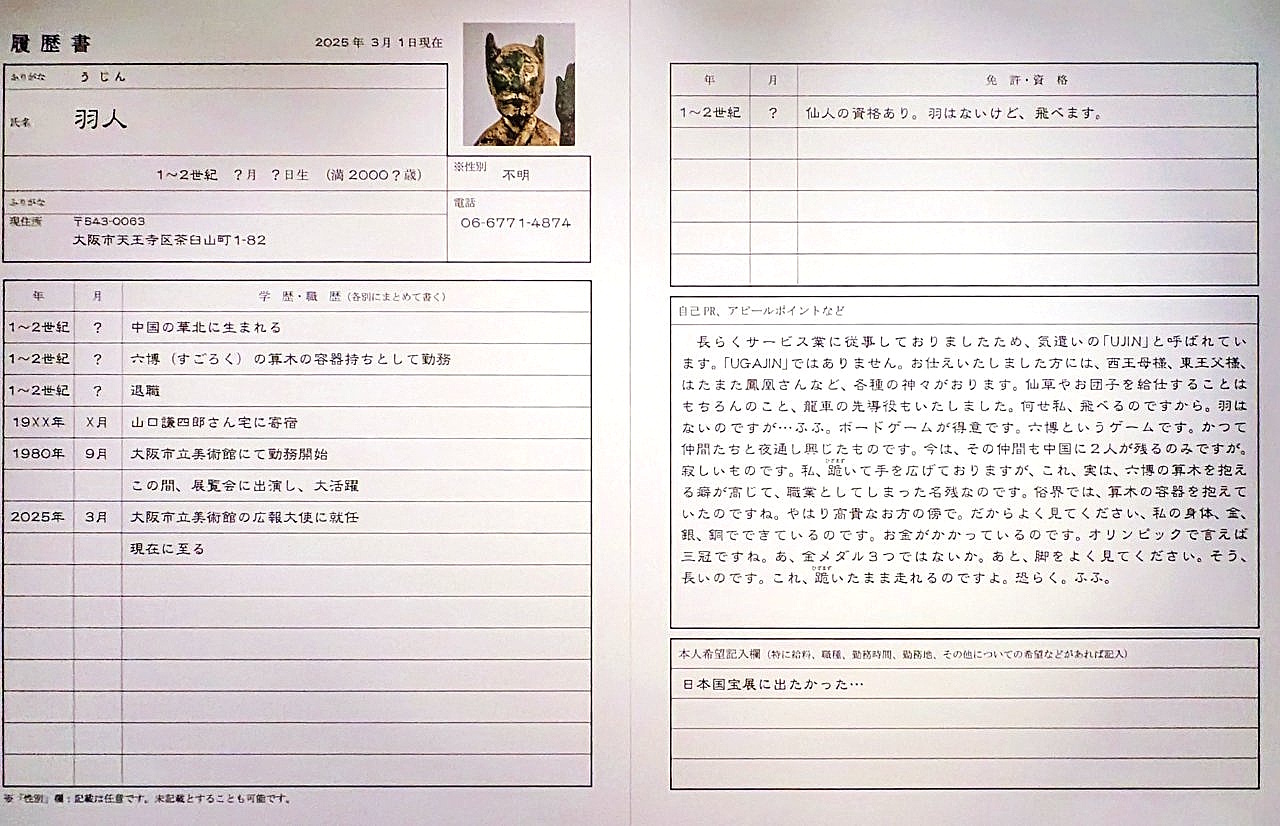 履歴書
2025年 3月 1日現在
ふりがな うじん
氏名 羽人
1〜2世紀 ?月 ?日生 (満2000?歳)
※性別 不明
ふりがな
現住所 〒543-0063
大阪市天王寺区茶臼山町1-82
電話
06-6771-4874
年 月 学 歴・職 歴(各別にまとめて書く)
1〜2世紀 ? 中国の華北に生まれる
1〜2世紀 ? 六博(すごろく)の算木の容器持ちとして勤務
1〜2世紀 ? 退職
19XX年 X月 山口謙四郎さん宅に寄宿
1980年 9月 大阪市立美術館にて勤務開始
この間、展覧会に出演し、大活躍
2025年 3月 大阪市立美術館の広報大使に就任
現在に至る
※「性別」欄:記載は任意です。未記載とすることも可能です。
年 月 免 許・資 格
1〜2世紀 ? 仙人の資格あり。羽はないけど、飛べます。
自己PR、アピールポイントなど
長らくサービス業に従事しておりましたため、気遣いの「UJIN」と呼ばれてい
ます。「UGAJIN」ではありません。お仕えいたしました方には、西王母様、東王父様、
はたまた鳳凰さんなど、各種の神々がおります。仙草やお団子を給仕することは
もちろんのこと、龍車の先導役もいたしました。何せ私、飛べるのですから。羽は
ないのですが…ふふ。ボードゲームが得意です。六博というゲームです。かつて
仲間たちと夜通し興じたものです。今は、その仲間も中国に2人が残るのみですが。
寂しいものです。私、跪いて手を広げておりますが、これ、実は、六博の算木を抱え
る癖が高じて、職業としてしまった名残なのです。俗界では、算木の容器を抱えて
いたのですね。やはり高貴なお方の傍で。だからよく見てください、私の身体、金、
銀、銅でできているのです。お金がかかっているのです。オリンピックで言えば
三冠ですね。あ、金メダル3つではないか。あと、脚をよく見てください。そう、
長いのです。これ、跪いたまま走れるのですよ。恐らく。ふふ。
本人希望記入欄(特に給料、職種、勤務時間、勤務地、その他についての希望などがあれば記入)
日本国宝展に出たかった…